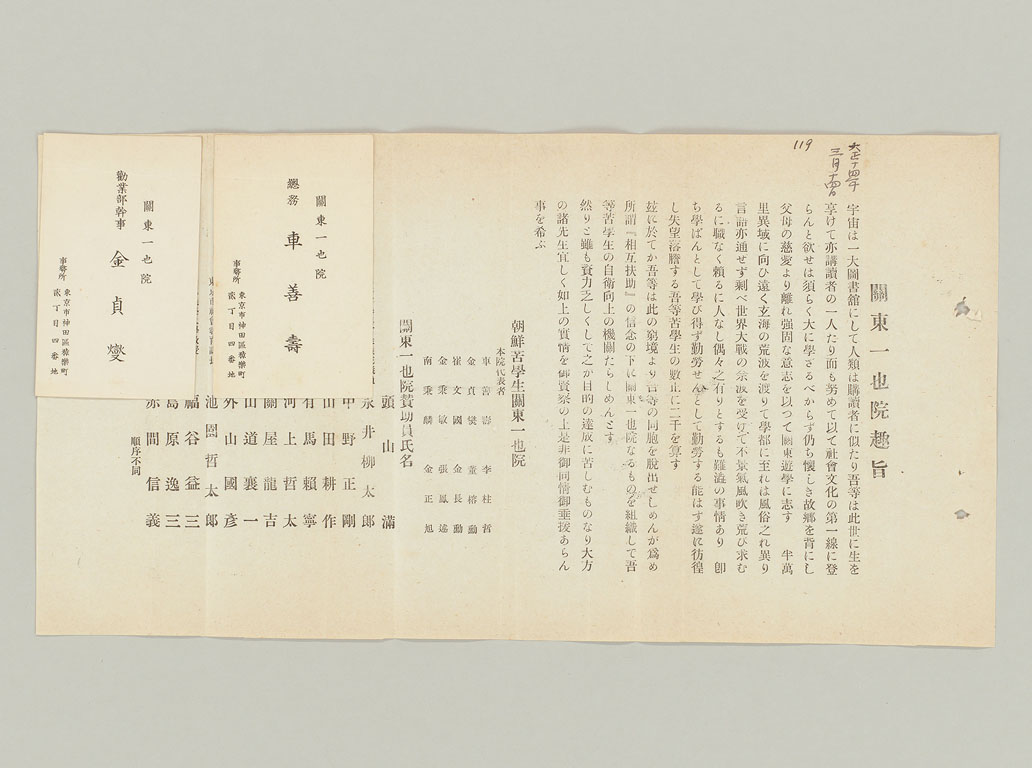 119
大正十四年
三月十四日
關東一也院趣旨
宇宙は一大圖書舘にして人類は購讀者に似たり吾等は此世に生を
享けて亦講讀者の一人たり而も努めて以て社會文化の第一線に登
らんと欲せは須らく大に學ざるべからず仍ち懷しき故鄕を背にし
父母の慈愛より離れ强固な意志を以つて關東遊學に志す　半萬
里異域に向ひ遠く玄海の荒波を渡りて學都に至れは風俗之れ異り
言語亦通せず剩へ世界大戰の余波を受けて不景氣風吹き荒び求む
るに職なく賴るに人なし偶々之有りとするも難澁の事情あり　卽
ち學ばんとして學び得ず勤勞せんとして勤勞する能はず遂に彷徨
し失望落膽する吾等苦學生の數正に二千を算す
玆に於てか吾等は此の窮境より吾等の同胞を脫出せしめんが爲め
所謂『相互扶助』の信念の下に關東一也院なるものを組織して吾
等苦學生の自衛向上の機關たらしめんとす
然りと雖も資力乏しくして之が目的の達成に苦しむものなり大方
の諸先生宜しく如上の實情を御賢察の上是非御同情御垂援あらん
事を希ふ
朝鮮苦學生關東一也院
本院代表者
車善壽　李柱哲
金貞燮　董榕勳
崔文國　金長勳
金秉敏　張鳳遙
南秉麟　金正旭
關東一也院贊助員氏名
頭山滿
永井柳太郎
中野正剛
山田耕作
有馬賴寧
河上哲太
關屋龍吉
山道襄一
外山國彥
池園哲太郎
福谷益三
島原逸三
赤間信義
順序不同
關東一也院
總務　車善壽
事務所　東京市神田區猿樂町
貳丁目四番地
關東一也院
勸業部幹事　金貞燮
事務所　東京市神田區猿樂町
貳丁目四番地